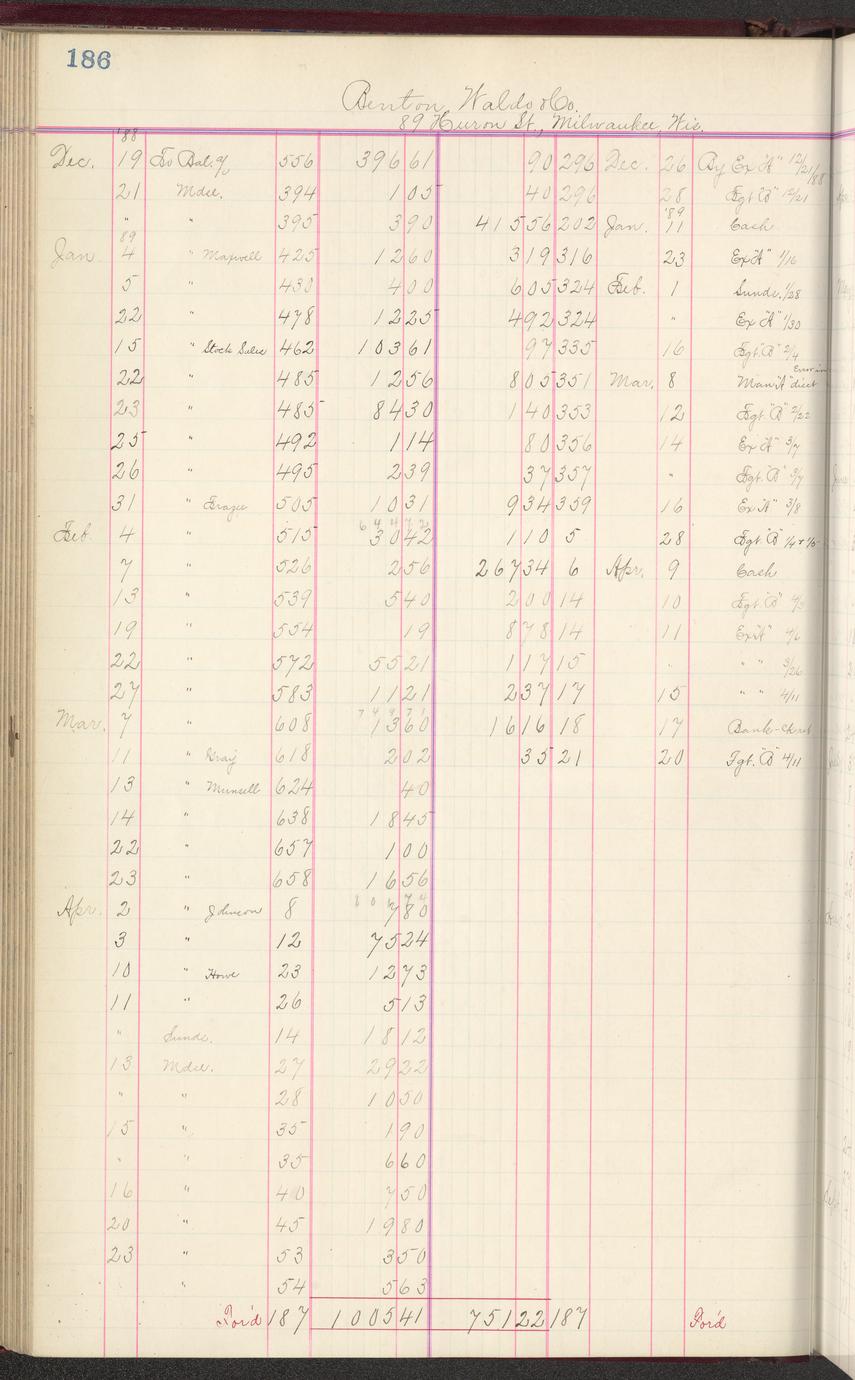 186
Benton, Waldo & Co.
89 Huron St., Milwaukee, Wis.
'88
Dec. 19 To Bal. of 556 396 61 90 296 Dec. 26 By Ex "A" 12/21/88
21 Mdse. 394 1 05 40 296 28 Fgt. "B" 12/21
" " 395 3 90 415 56 202 Jan. '89 11 Cash
Jan. 89 4 " Maxwell 425 12 60 3 19 316 23 Ex "A" 1/16
5 " 430 4 00 6 05 324 Feb. 1 Sunds. 1/28
22 " 478 12 25 4 92 324 " Ex "A" 1/30
15 " Stock Sales 462 103 61 97 335 16 Fgt. "B" 2/4
22 " 485 12 56 8 05 351 Mar. 8 Man "A" Error in
23 " 485 84 30 1 40 353 12 Fgt. "B" 2/22
25 " 492 1 14 80 356 14 Ex "A" 3/7
26 " 495 2 39 37 357 " Fgt. "B" 3/7
31 " Frazee 505 10 31 9 34 359 16 Ex "A" 3/8
644 72
Feb. 4 " 515 30 42 1 10 5 28 Fgt. "B" 1/4 + 1/5
7 " 526 2 56 267 34 6 Apr. 9 Cash
13 " 539 5 40 2 00 14 10 Fgt. "B" 4/3
19 " 554 19 8 78 14 11 Ex "A" 4/6
22 " 572 55 21 1 17 15 " " " 3/26
27 " 583 11 21 2 37 17 15 " " 4/11
749 71
Mar. 7 " 608 13 60 16 16 18 17 Bank-Check
11 " Gray 618 2 02 35 21 20 Fgt. "B" 4/11
13 " Munsell 624 40
14 " 638 18 45
22 " 657 1 00
23 " 658 16 56
Apr. 2 " Johnson 8 7 80
3 " 12 75 24
10 " Howe 23 12 73
11 " 26 5 13
" Sunds. 14 18 12
13 Mdse. 27 29 22
" " 28 10 50
15 " 35 1 90
" " 35 6 60
16 " 40 7 50
20 " 45 19 80
23 " 53 3 50
" 54 5 63
For'd 187 1005 41 751 22 187 For'd